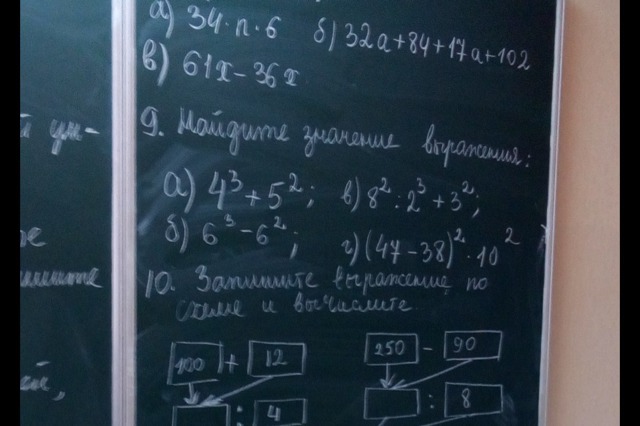 а) 34·n·6 б) 32a+84+17a+102
в) 61x–36x
9. Найдите значение выражения:
а) 4³+5²; в) 8²:2³+3²;
б) 6³–6²; г) (47–38)²·10²
10. Запишите выражение по
схеме и вычислите.
100 + 12 250 – 90
: 4 : 8